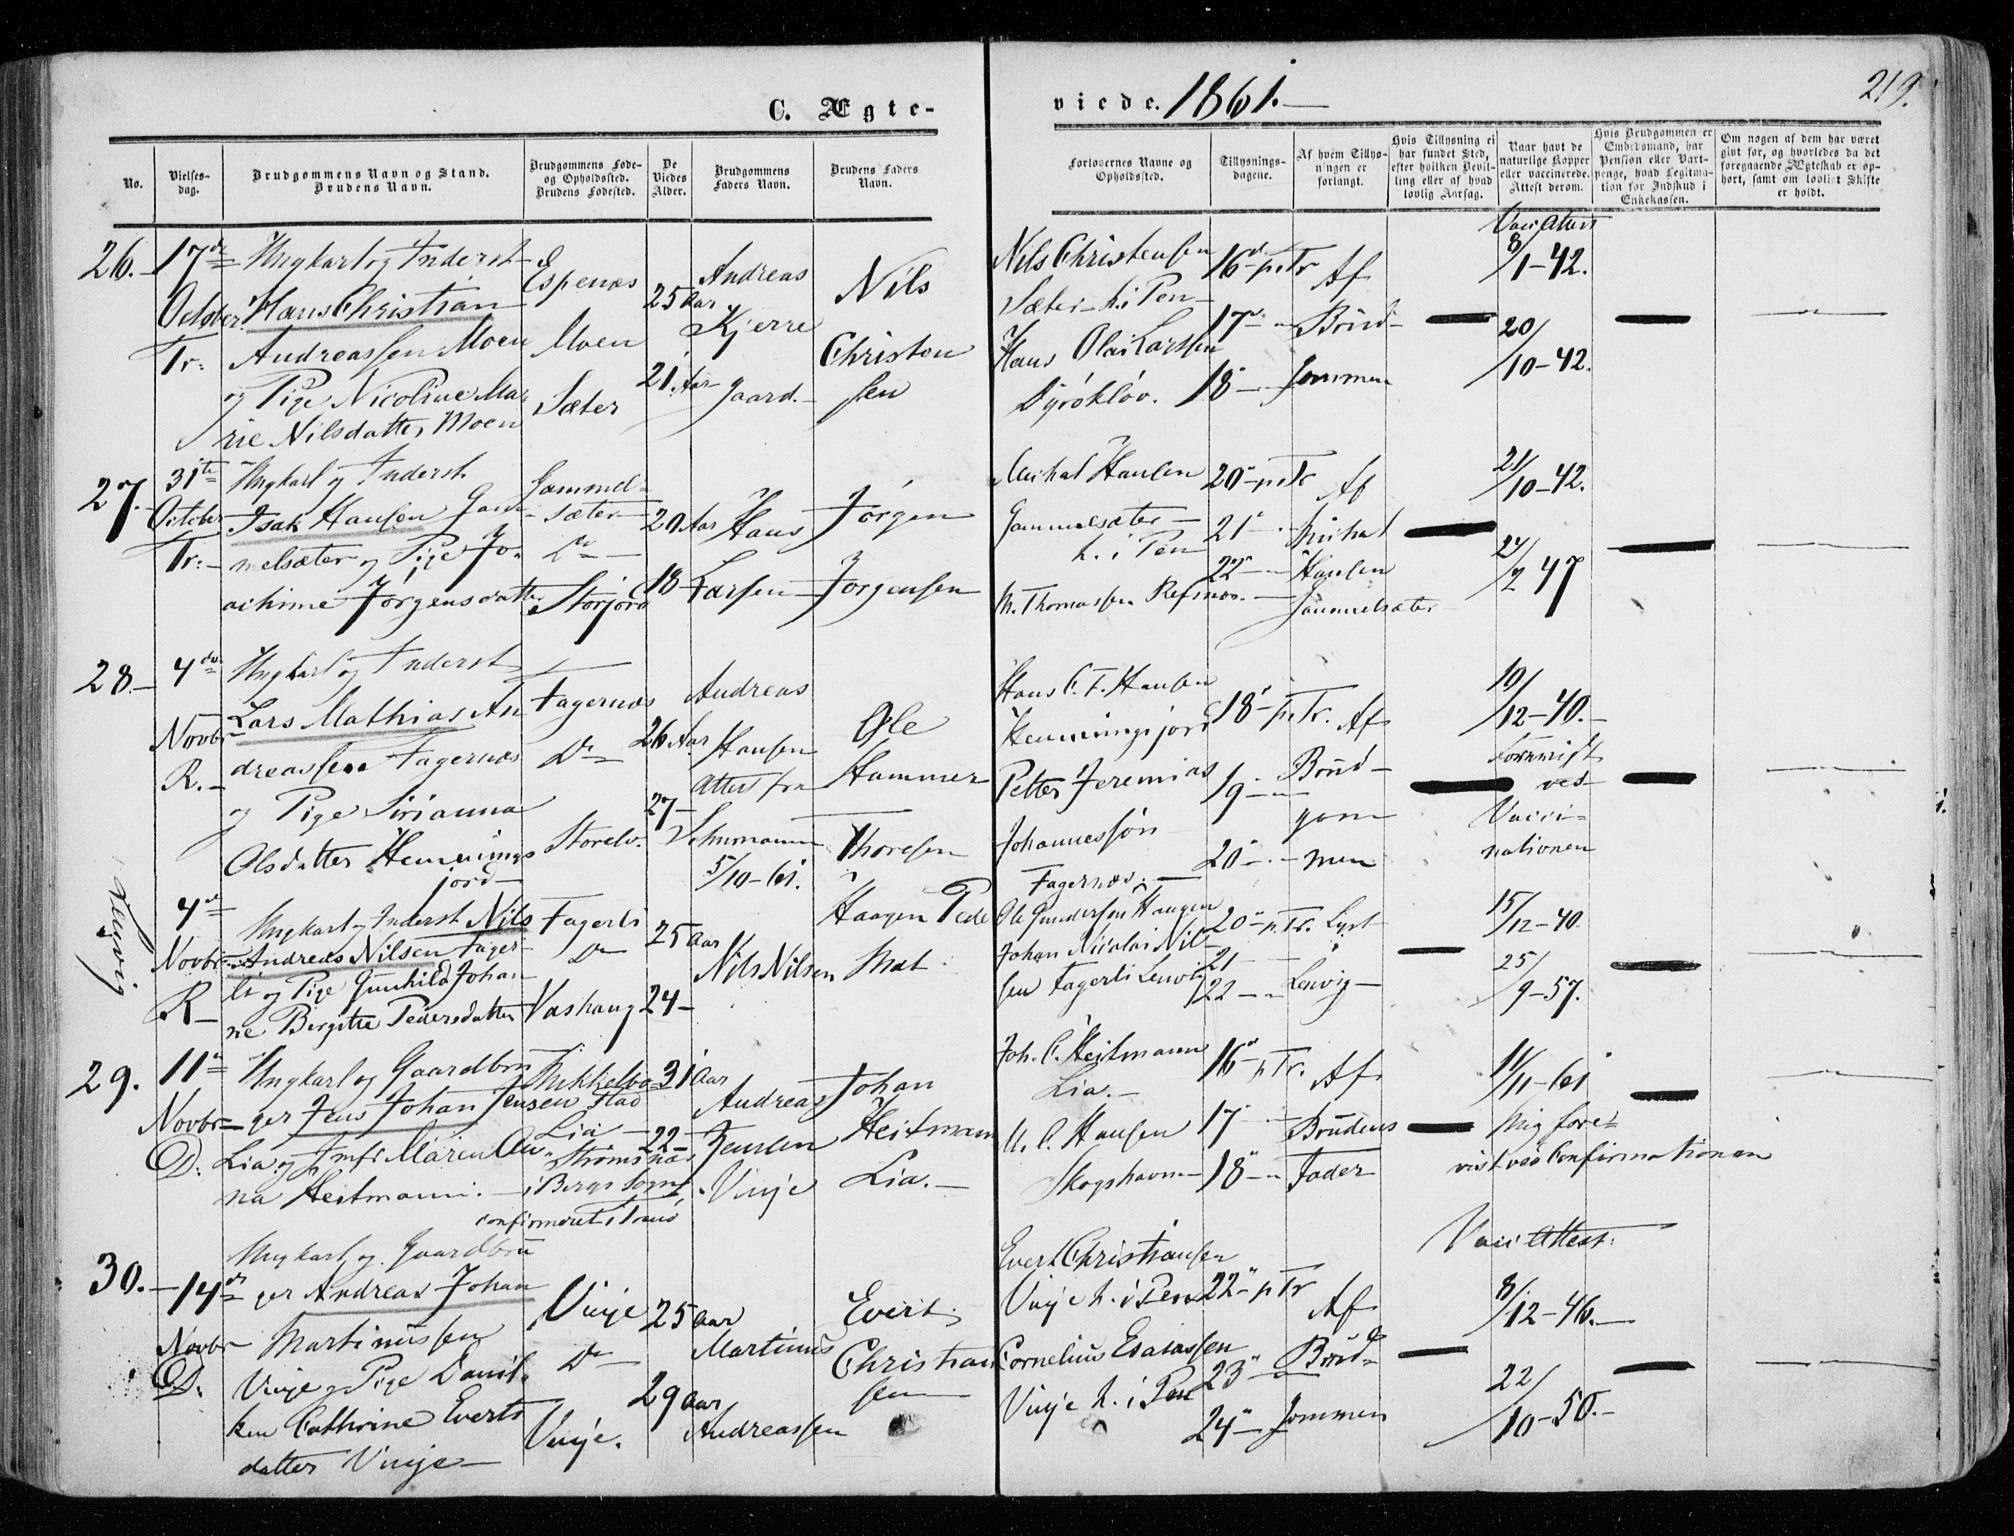 219.
C. Ægte-
viede. 1861.
No.
Vielses-
dag.
Brudgommens Navn og Stand.
Brudens Navn.
Brudgommens Føde-
og Opholdssted.
Brudens Fødested.
De
Viedes
Alder.
Brudgommens
Faders Navn.
Brudens Faders
Navn.
Forlovernes Navne og
Opholdssted.
Tillysnings-
dagene.
Af hvem Tillys-
ningen er
forlangt.
Hvis Tillysning ei
har fundet Sted,
efter hvilken Bevil-
ling eller af hvad
lovlig Aarsag.
Naar havt de
naturlige Kopper
eller vaccinerede.
Attest derom.
Hvis Brudgommen er
Embedsmand, har
Pension eller Vart-
penge, hvad Legitima-
tion for Indskud i
Enkekassen.
Om nogen af dem har været
givt før, og hvorledes da det
foregaaende Ægteskab er op-
hørt, samt om lovligt Skifte
er holdt.
26.
17de
October
Tr:
Ungkarl og Inderst
Hans Christian
Andreassen Moen
og Pige Nicoline Ma-
rie Nilsdatter Moen
Espenæs
Moen
Sæter
25 Aar
21. Aar
Andreas
Kjerre
gaard.
Nils
Christen
sen
Nils Christensen
Sæter h. i Pen
Hans Olai Larssen
Dyrøkløv.
16de p. Tr
17
18
Af
Brud-
gommen
Vaci Attest
8/1-42.
20/10-42.
27.
31te
October
Tr:
Ungkarl og Inderst
Isak Hansen Gam-
melsæter og Pige Jo-
achime Jørgensdatter
Gammel-
sæter
Do
Storjord
29 Aar
18
Hans
Larsen
Jørgen
Jørgensen
Michal Hansen
Gammelsæter
h. i Pen
M. Thomassen Refsnæs.
20 p. Tr
21
22
Af
Michal
Hansen
Gammelsæter
21/10-42.
24/7 47
28.
4de
Novbr
R.
Ungkarl og Inderst
Lars Mathias An
dreassen Fagernæs
og Pige Sirianna
Olsdatter Hennings
jord
Fagernæs
Do
Storelv.
26 Aar
27
Andreas
Hansen
Attest fra
Schumann
5/10-61.
Ole
Hammer
Thoresen
Hans C. F. Hansen
Henningsjord
Petter Jeremias
Johannessøn
Fagernæs.
18 p. Tr.
19
20
Af
Brud-
gom
men
10/12-40.
ved
Vacci-
nationen
Lenvig
4de
Novbr
R
Ungkarl og Inderst Nils
Andreas Nilsen Fager-
li og Pige Gunhild Johan
ne Birgitte Pedersdatter
Fagerli
Do
Vashaug
25 Aar
24
Nils Nilsen
Haagen Peder
Mat.
Ole Gundersen Haugen
Johan Nicolai Nil-
sen Fagerli Lenvig
20 p. Tr.
21
22
Lyst
i
Lenvig
15/12-40.
25/9-57.
29.
11te
Novbr
D:
Ungkarl og Gaardbru
ger Jens Johan Jensen
Lia og Jmfr Maren An-
na Heitmann.
Mikkelbo
stad
Lia
Strømsnæs
i Bergs Sogn
confirmeret i Trnø
31 Aar
22
Andreas
Jensen
Vinje
Johan
Heitmann
Lia.
Joh. C. Heitmann
Lia.
A. C. Hansen
Skogshavn
16 p. Tr.
17
18
Af
Brudens
Fader
11/11-61
Mig fore-
vist ved Confirmationen
30.
14de
Novbr
D.
Ungkarl og Gaardbru
ger Andreas Johan
Martinussen
Vinje og Pige Danil-
ken Cathrine Everts
datter Vinje
Vinje
Do
Vinje.
25 Aar
29 Aar
Martinus
Andreassen
Evert
Christian
sen
Evert Christiansen
Vinje h. i Pen
Cornelius Esaiassen
Vinje h. i Pen
22 p. Tr
23
24
Af
Brud-
gommen
Vaci Attest.
8/12-46.
22/10-50.